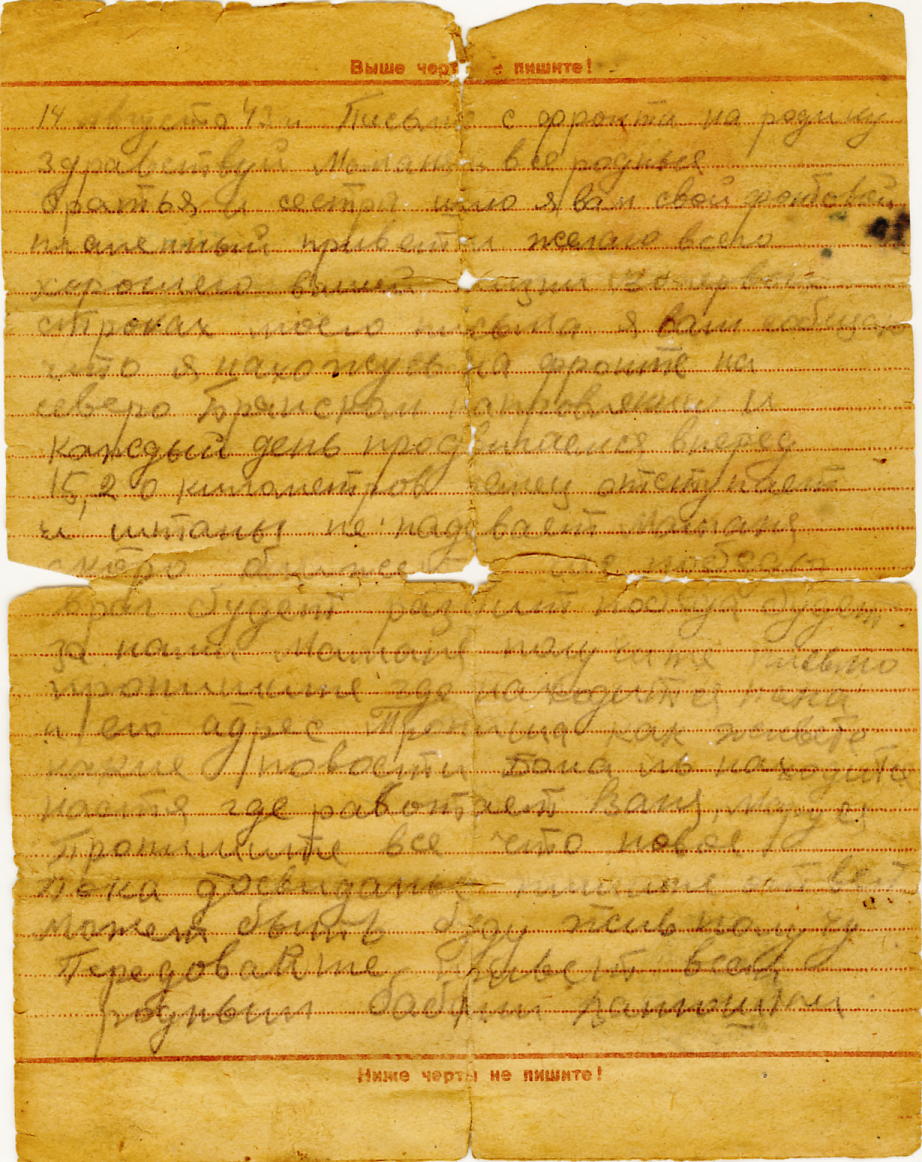 Выше черты не пишите!
14 августа 43 г Письмо с фронта на родину
здравствуй Мамаша и все родные
братья и сестры шло я вам свой
пламенный привет и желаю всего
хорошего вашей жизни
строках моего письма я вам сообщаю
что я нахожусь на фронте на
северо Брянском направлении и
каждый день продвигаемся вперед
15, 20 километров немец отступает
и штаны не надевает Мамаша
скоро
враг будет разбит победа будет
за нами Мамаша получите письмо
пропишите где находится
и его адрес как живете
какие новости находится
настя где работает Ваня,
Пропишите все что новое
Пока досвиданье пишите ответ
может быть буду жив получу
Передовайте привет всем
родным
Ниже черты не пишите!